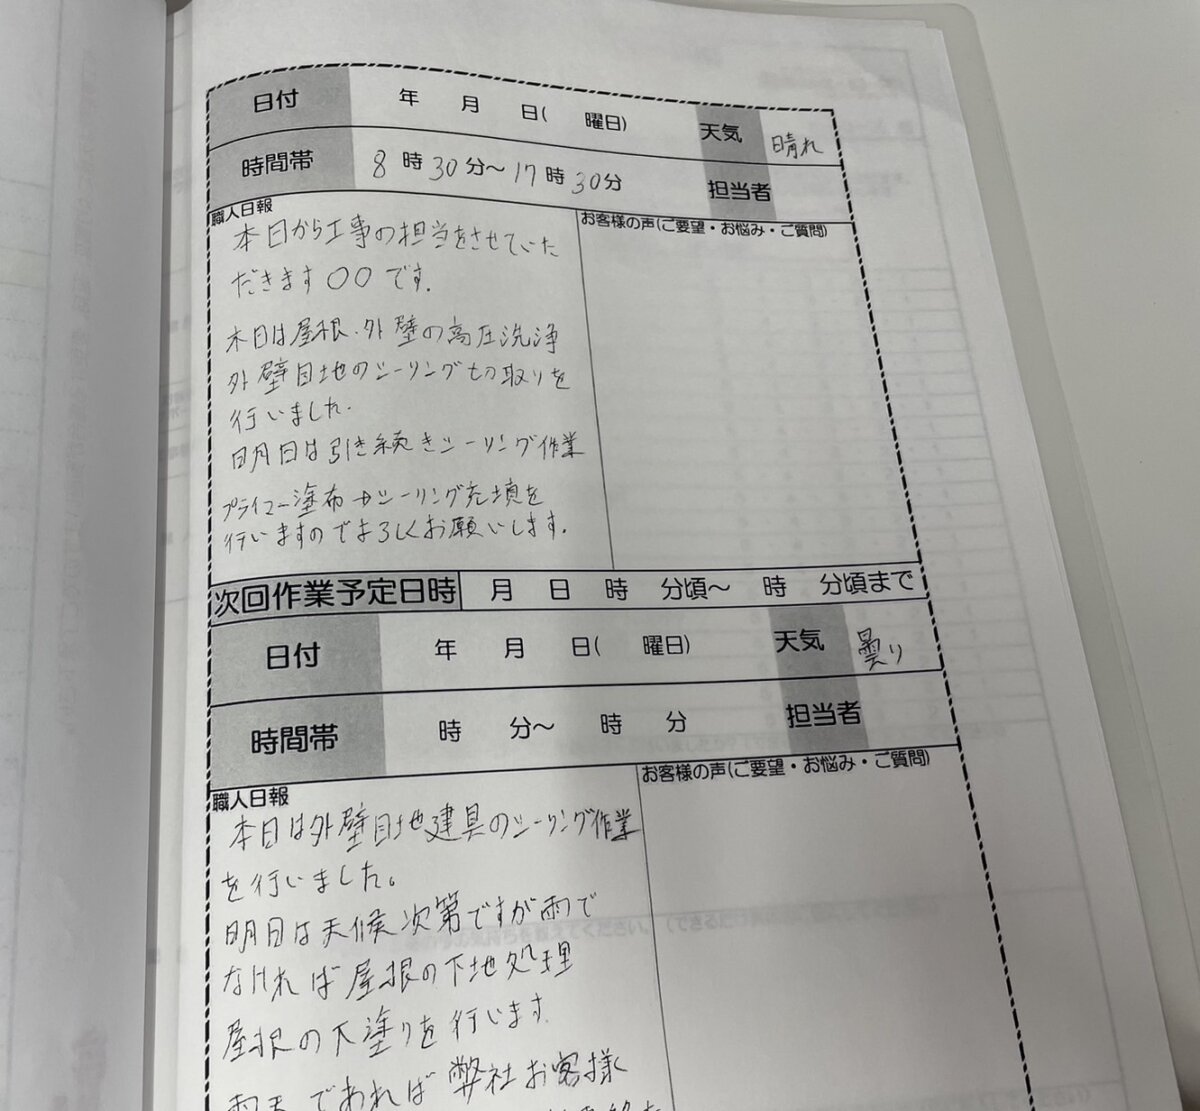 日付 年 月 日( 曜日) 天気 晴れ
時間帯 8時30分〜17時30分 担当者
職人日報
お客様の声(ご要望・お悩み・ご質問)
本日から工事の担当をさせていた
だきます〇〇です.
本日は屋根.外壁の高圧洗浄
外壁目地のシーリング切取りを
行いました.
明日は引き続きシーリング作業
プライマー塗布 シーリング充填を
行いますのでよろしくお願いします.
次回作業予定日時 月 日 時 分頃〜 時 分頃まで
日付 年 月 日( 曜日) 天気 曇り
時間帯 時 分〜 時 分 担当者
職人日報
お客様の声(ご要望・お悩み・ご質問)
本日は外壁目地建具のシーリング作業
を行いました。
明日は天候次第ですが雨で
なければ屋根の下地処理
屋根の下塗りを行います.
雨天であれば弊社お客様